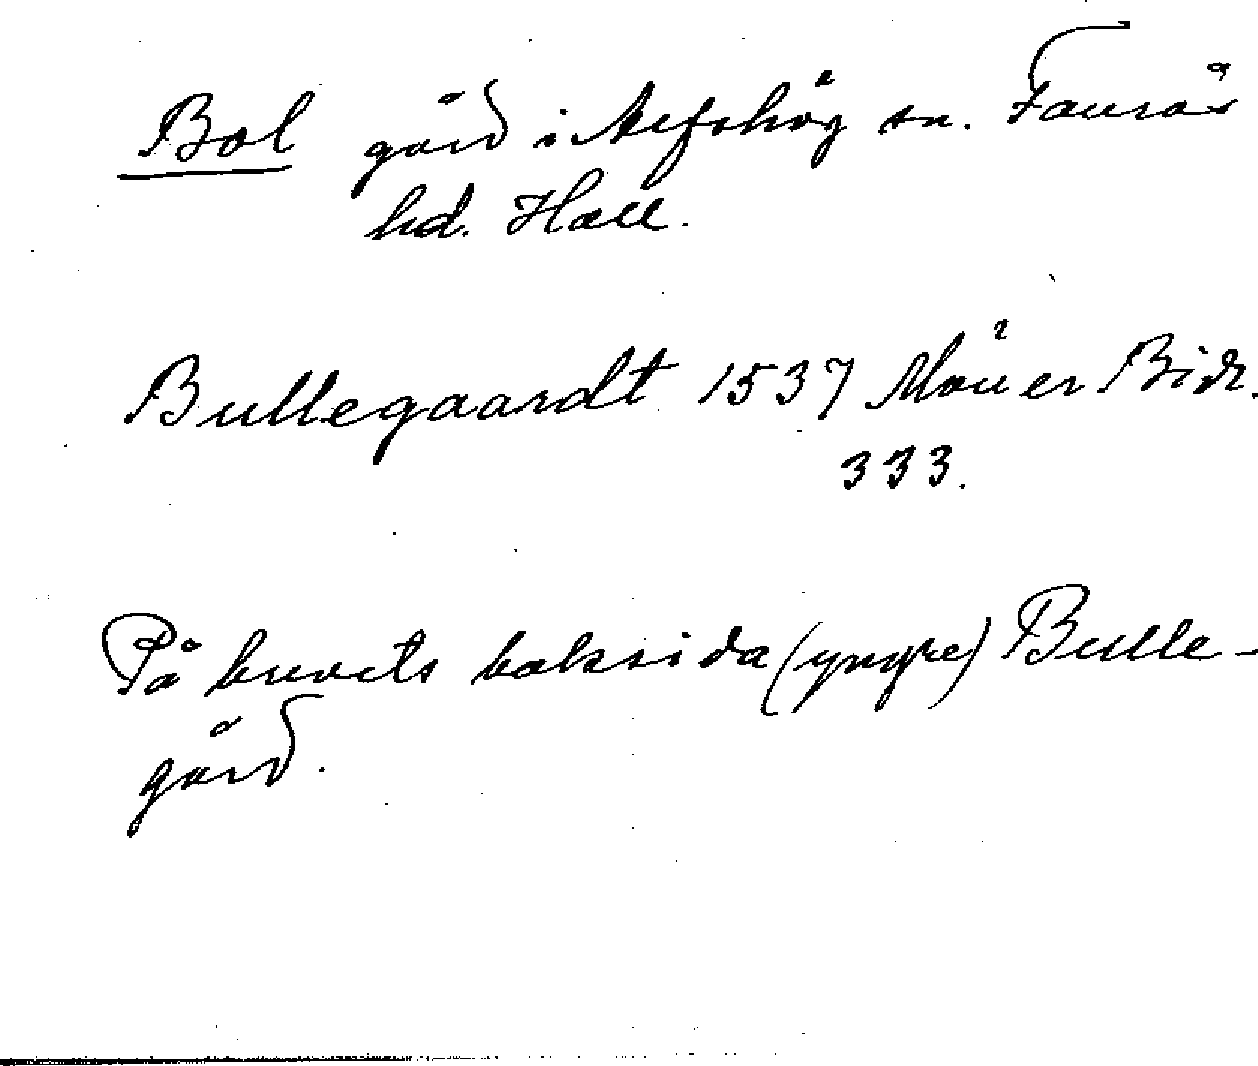 Bol gård i Alfshög sn. Faurås
hd. Hall.
Bullegaardt 1537 Möller Bidr.
333.
På brevets baksida (yngre) Bulle-
gård.